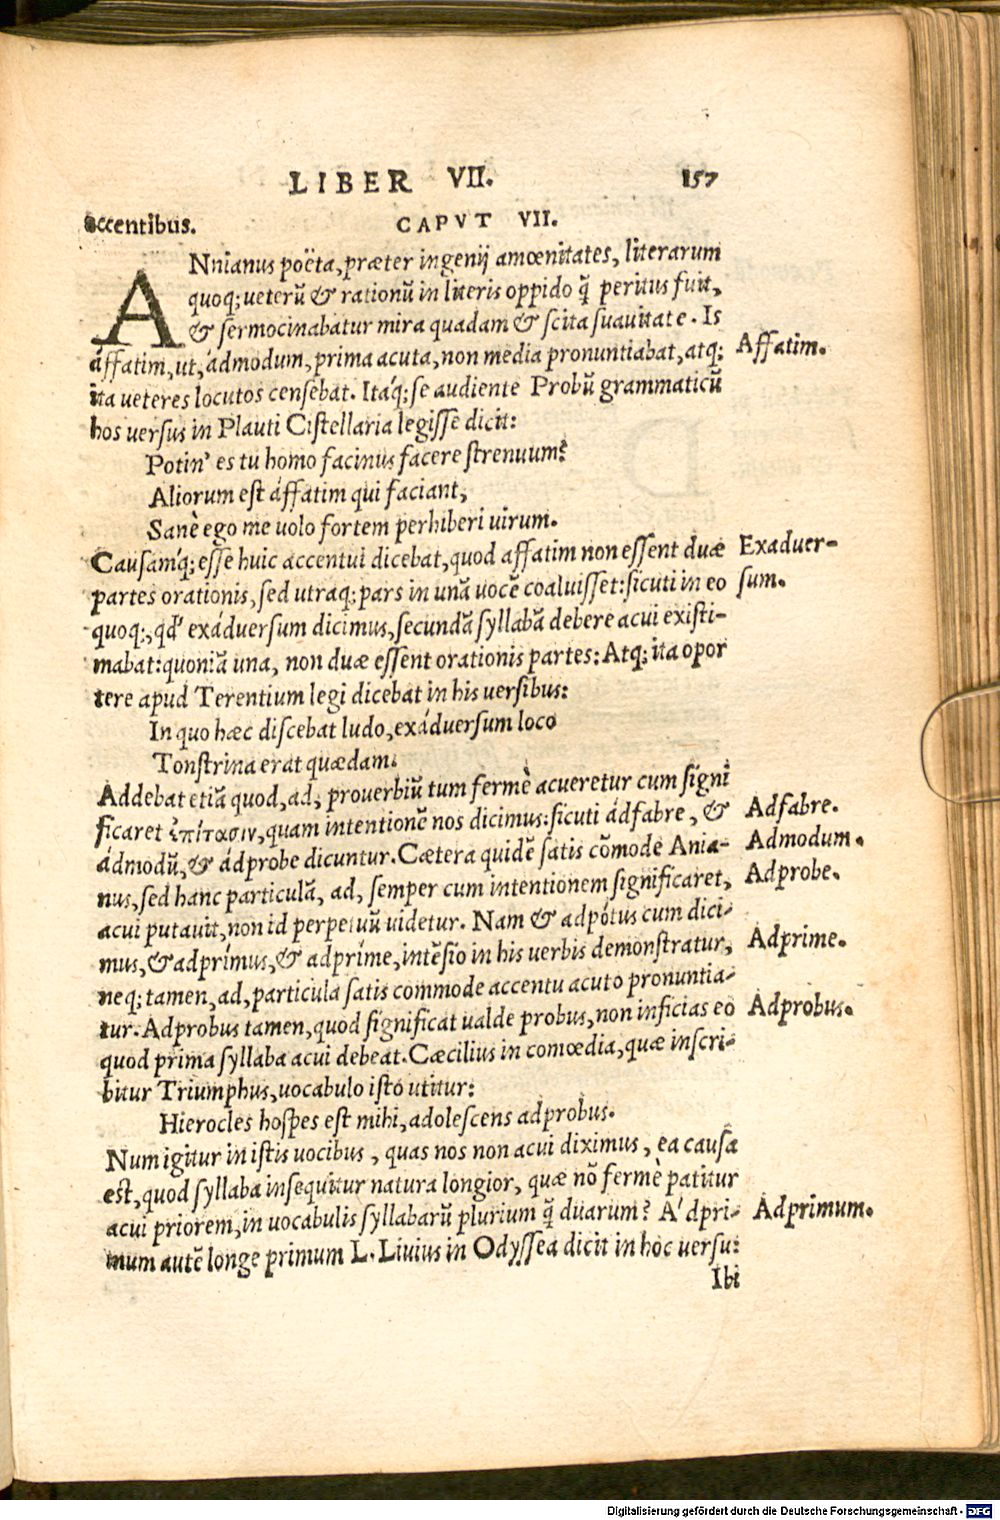 LIBER VII. 157
accentibus. CAPVT VII.
ANnianus poëta, præter ingenij amœnitates, literarum
quoq; ueterũ & rationũ in literis oppido q̃ peritus fuit,
& sermocinabatur mira quadam & scita suauitate. Is
áffatim, ut, ádmodum, prima acuta, non media pronuntiabat, atq; Affatim.
ita ueteres locutos censebat. Itaq́; se audiente Probũ grammaticũ
hos uersus in Plauti Cistellaria legisse dicit:
Potin' es tu homo facinus facere strenuum?
Aliorum est áffatim qui faciant,
Sanè ego me uolo fortem perhiberi uirum.
Causamq́; esse huic accentui dicebat, quod affatim non essent duæ Exaduer-
partes orationis, sed utraq; pars in unã uocẽ coaluisset: sicuti in eo sum.
quoq;, qd' exáduersum dicimus, secundã syllabã debere acui existi-
mabat: quoniã una, non duæ essent orationis partes: Atq; ita opor
tere apud Terentium legi dicebat in his uersibus:
In quo hæc discebat ludo, exáduersum loco
Tonstrina erat quædam.
Addebat etiã quod, ad, prouerbiũ tum fermè acueretur cum signi
ficaret ἐπίτασιν, quam intentionẽ nos dicimus: sicuti ádfabre, & Adfabre.
ádmodũ, & ádprobe dicuntur. Cætera quidẽ satis cõmode Ania- Admodum.
nus, sed hanc particulã, ad, semper cum intentionem significaret, Adprobe.
acui putauit, non id perpetuũ uidetur. Nam & adpótus cum dici-
mus, & adprímus, & adpríme, intẽsio in his uerbis demonstratur, Adprime.
neq; tamen, ad, particula satis commode accentu acuto pronuntia-
tur. Adprobus tamen, quod significat ualde probus, non inficias eo Adprobus.
quod prima syllaba acui debeat. Cæcilius in comœdia, quæ inscri-
bitur Triumphus, uocabulo isto utitur:
Hierocles hospes est mihi, adolescens adprobus.
Num igitur in istis uocibus, quas nos non acui diximus, ea causa
est, quod syllaba insequitur natura longior, quæ nõ fermè patitur
acui priorem, in uocabulis syllabarũ plurium q̃ duarum? A'dpri- Adprimum.
mum autẽ longe primum L. Liuius in Odyssea dicit in hoc uersu:
Ibi
Digitalisierung gefördert durch die Deutsche Forschungsgemeinschaft - DFG